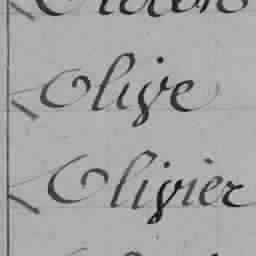 Olive
Olivier